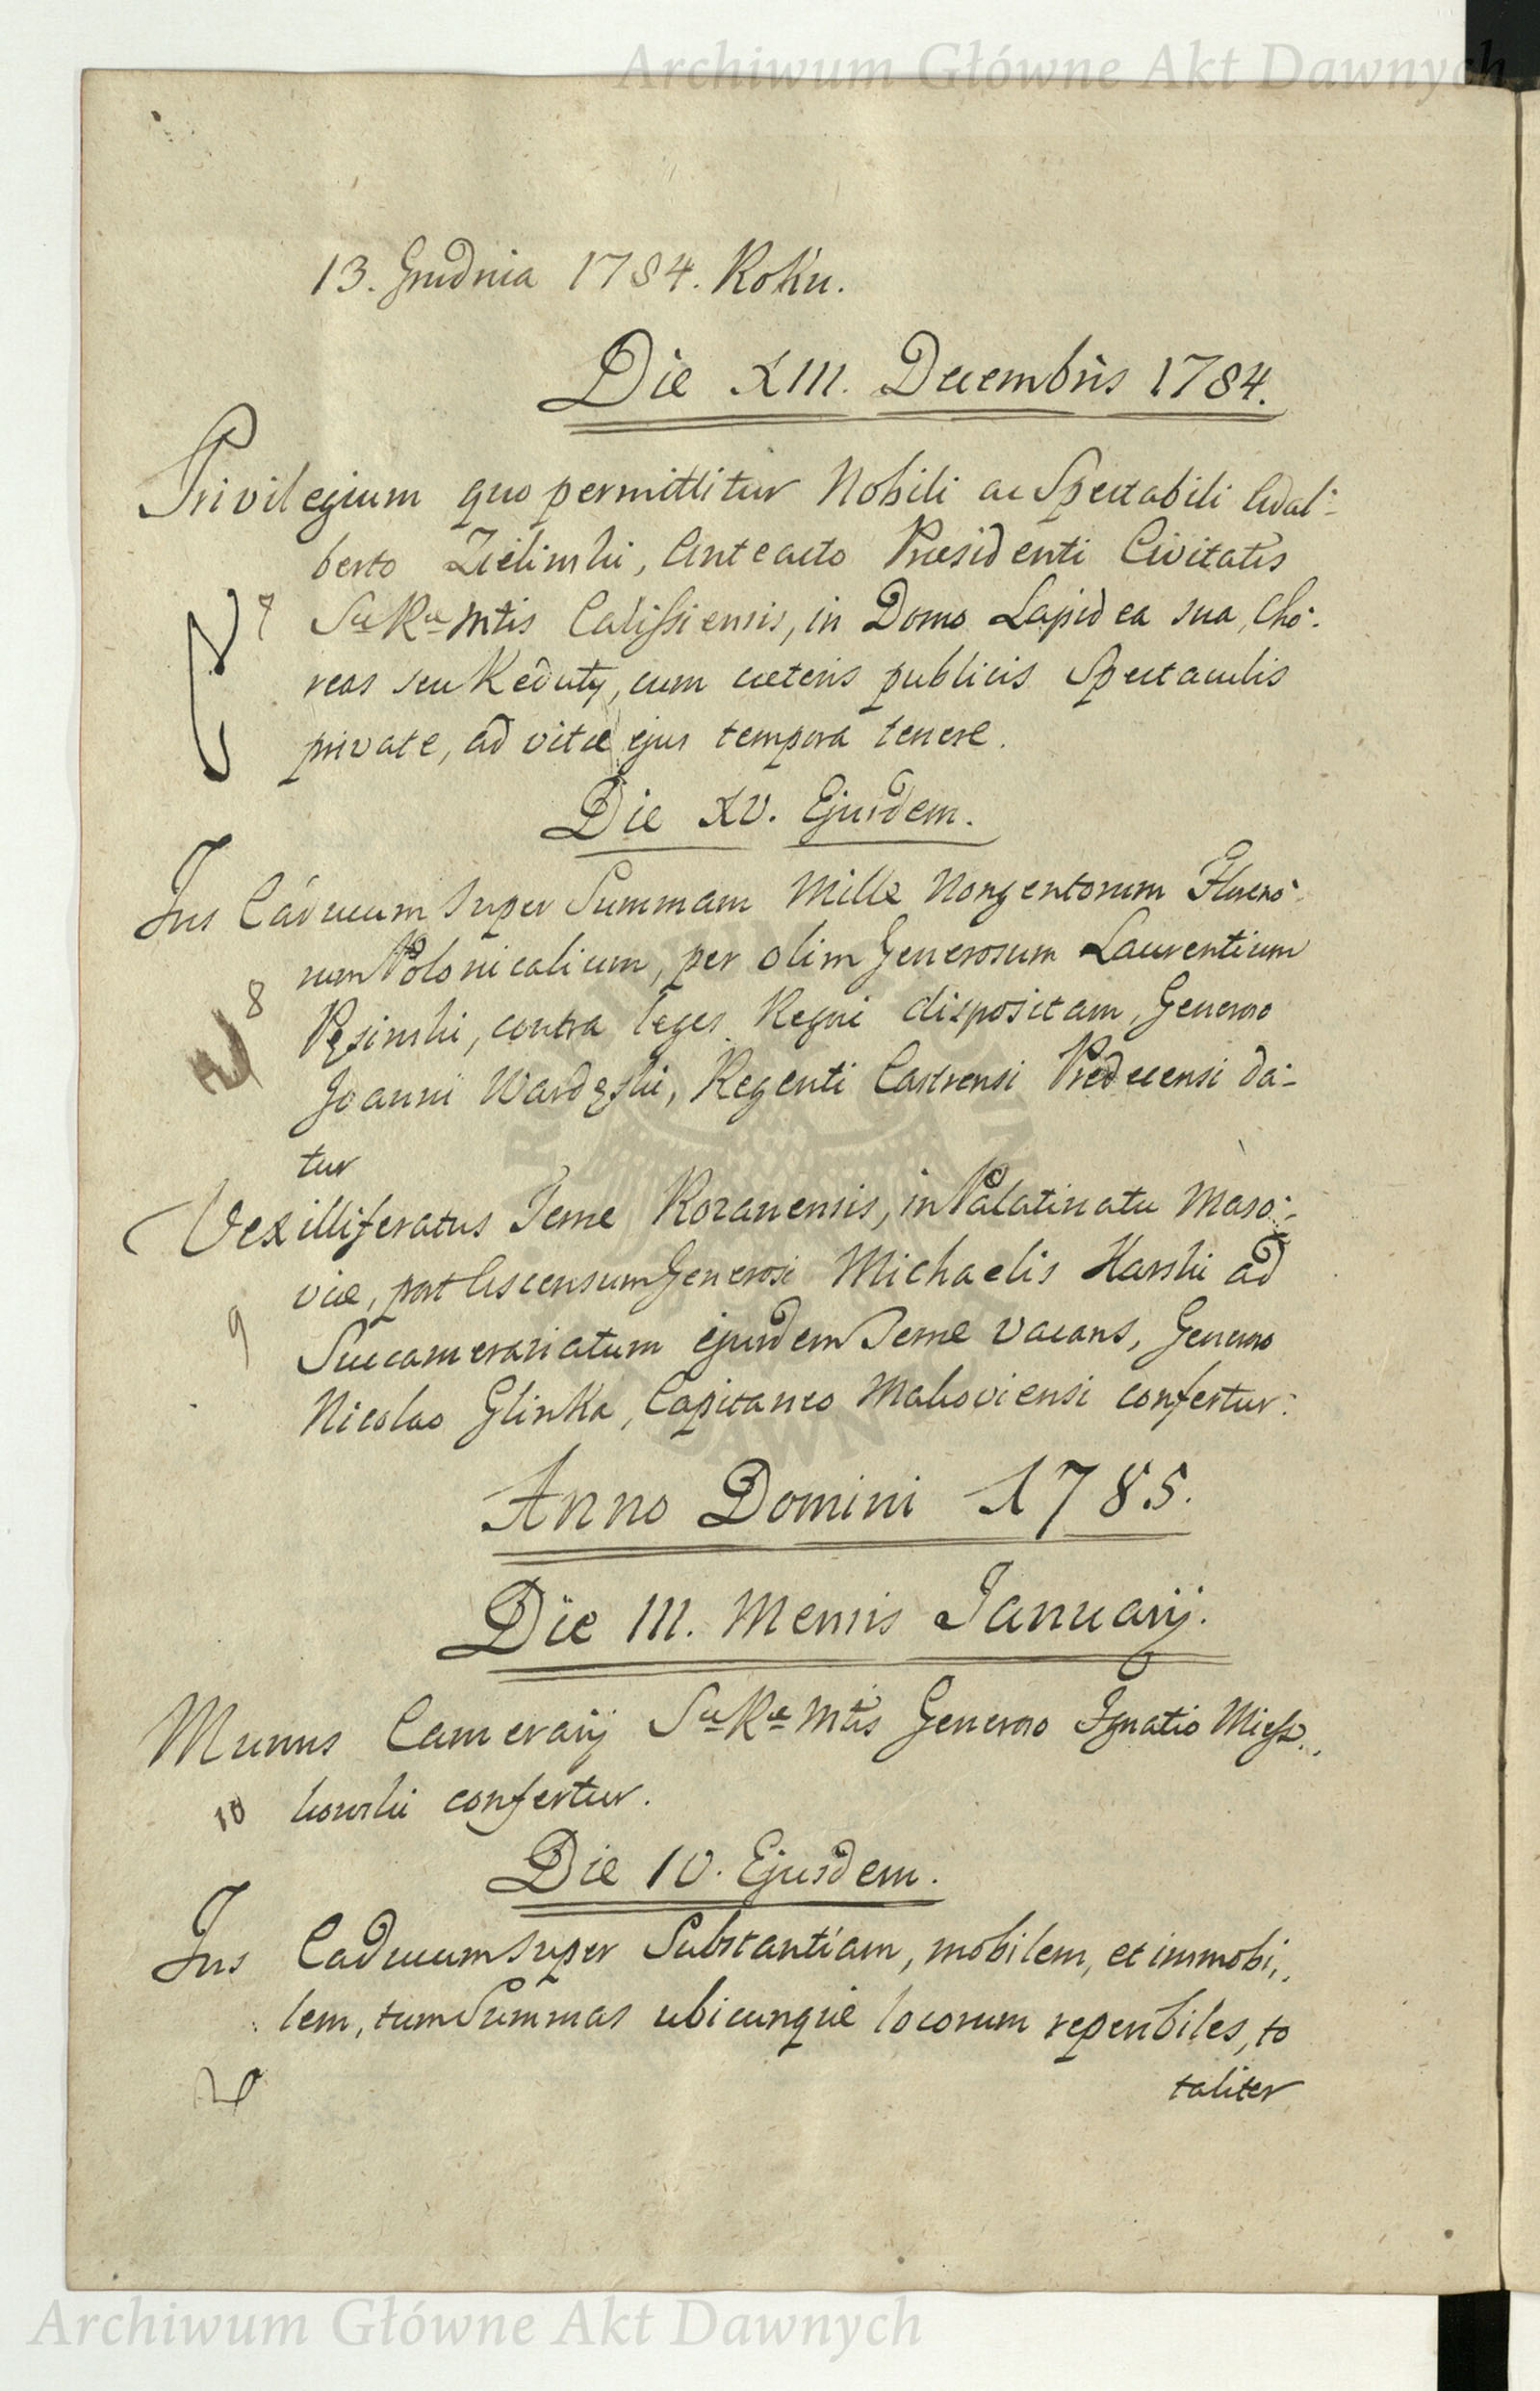 Archiwum Główne Akt Dawnych
13. Grudnia 1784. Roku.
Die XIII. Decembris 1784.
Privilegium quo permittitur Nobili ac Spectabili Adal:
berto Zielinski, Anteacto Præsidenti Civitatis
7 Sæ Ræ Mtis Calissiensis, in Domo Lapidea sua, Cho:
reas seu Reduty, cum cæteris publicis Spectaculis
private, ad vitæ ejus tempora tenere.
Die XV. Ejusdem.
Jus Caducum super Summam Mille Nongentorum Floreno:
rum Polonicalium, per olim Generosum Laurentium
8 contra leges Regni dispositam, Generoso
Joanni Wardęski, Regenti Castrensi Predecensi da:
tur
Vexilliferatus Terræ Rozanensis, in Palatinatu Maso:
viæ, post Ascensum Generosi Michaelis Karski ad
9 Succamerariatum ejusdem Terræ vacans, Generoso
Nicolao Glinka, Capitaneo Makoviensi confertur:
Anno Domini 1785.
Die III. Mensis Januarij.
Munus Camerarij Sæ Ræ Mtis Generoso Ignatio
10 kowski confertur.
Die IV. Ejusdem.
Jus Caducum super Substantiam, mobilem, et immobi,,
lem, tum Summas ubicunque locorum reperibiles, to
taliter
Archiwum Główne Akt Dawnych